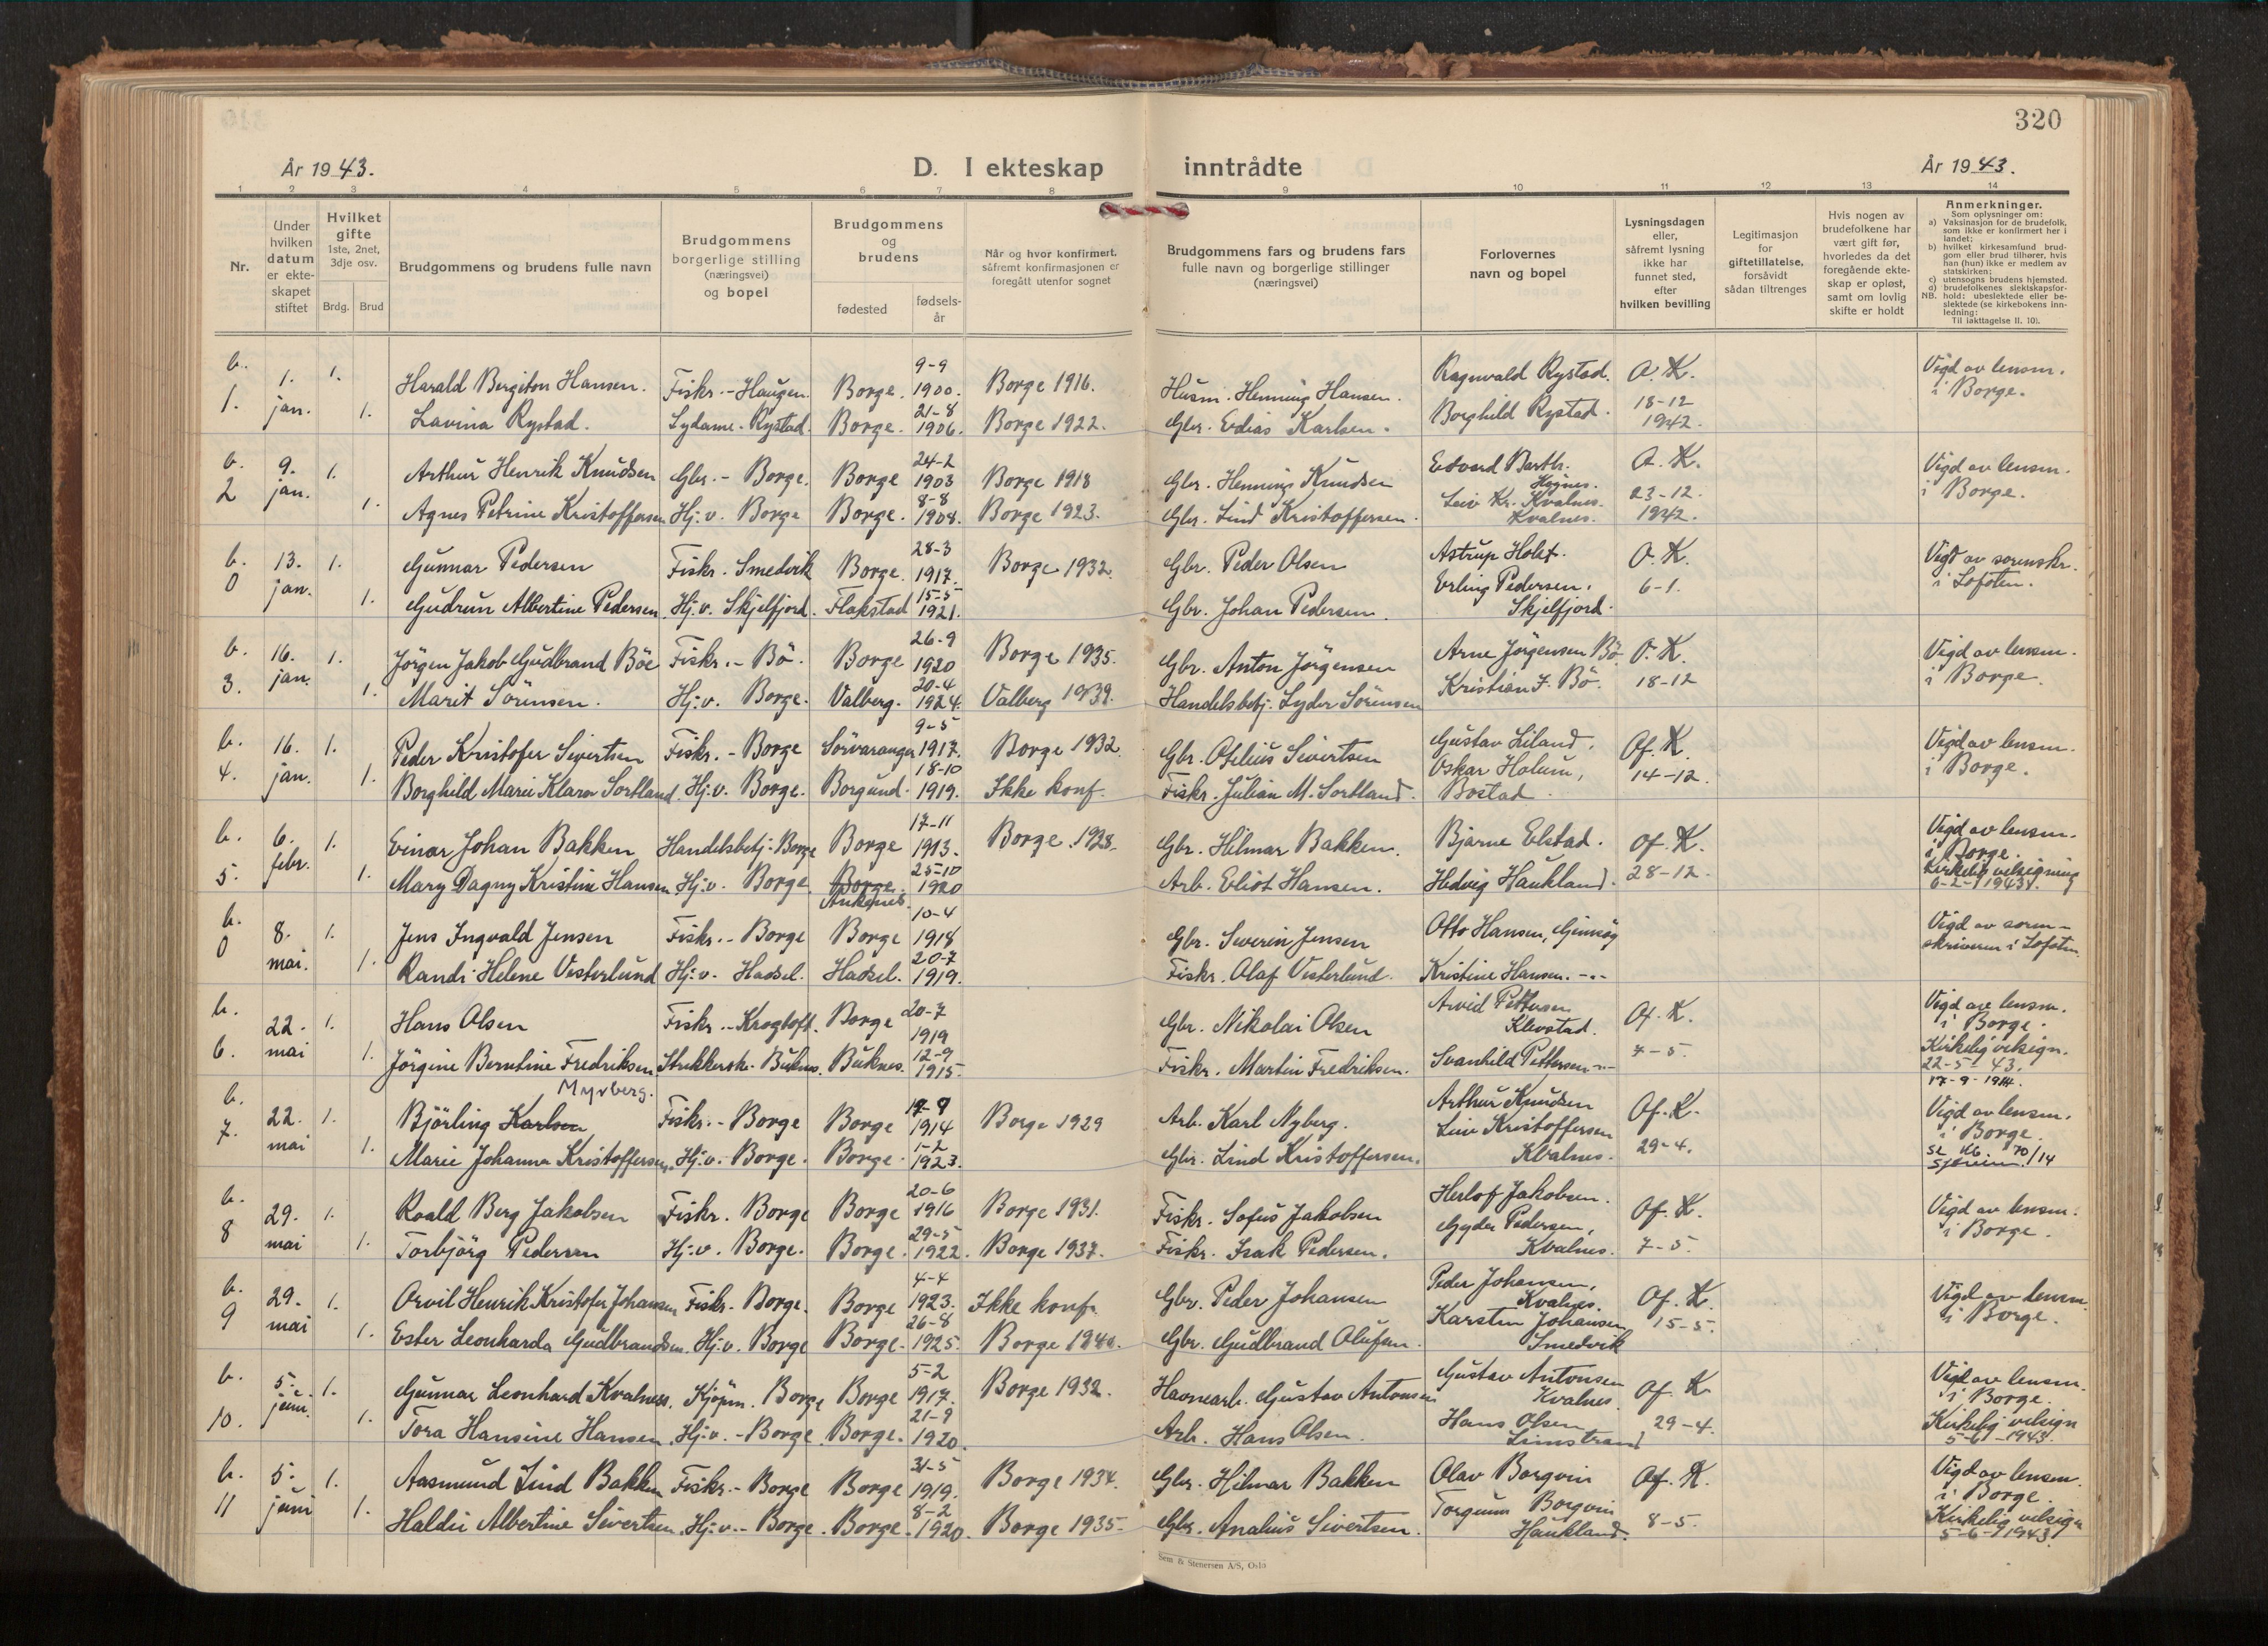 320
År 1943.
D. I ekteskap inntrådte
År 1943.
1 2 3 4 5 6 7 8 9 10 11 12 13 14
Nr.
Under hvilken datum er ekte-skapet stiftet
Hvilket gifte 1ste, 2net, 3dje osv.
Brdg. Brud
Brudgommens og brudens fulle navn
Brudgommens borgerlige stilling (næringsvei) og bopel
Brudgommens og brudens
fødested
fødsels-år
Når og hvor konfirmert, såfremt konfirmasjonen er foregått utenfor sognet
Brudgommens fars og brudens fars fulle navn og borgerlige stillinger (næringsvei)
Forlovernes navn og bopel
Lysningsdagen eller, såfremt lysning ikke har funnet sted, efter hvilken bevilling
Legitimasjon for giftetillatelse, forsåvidt sådan tiltrenges
Hvis nogen av brudefolkene har vært gift før, hvorledes da det foregående ekte-skap er opløst, samt om lovlig skifte er holdt
Anmerkninger.
Som oplysninger om:
a) Vaksinasjon for de brudefolk, som ikke er konfirmert her i landet;
b) hvilket kirkesamfund brud-gom eller brud tilhører, hvis han (hun) ikke er medlem av statskirken;
c) utensogns brudens hjemsted.
d) brudefolkenes slektskapsfor-
NB. hold: ubeslektede eller be-slektede (se kirkebokens inn-ledning:
Til iakttagelse II. 10).
b. 1. 1. Harald Bergiton Hansen. Fiskr. - Haugen. Borge. 9-9 1900. Borge 1916. Husm. Henning Hansen. Ragnvald Rystad. O.K. Vigd av lensm. i Borge.
1. jan. 1. Lavina Rystad. Sydame - Rystad. Borge. 21-8 1906. Borge 1922. Gbr. Edias Karlsen. Borghild Rystad. 18-12 1942.
b. 9. 1. Arthur Henrik Knudsen Gbr. - Borge. Borge 24-2 1903 Borge 1918 Gbr. Henning Knudsen Edvard Barth. O.K. Vigd av lensm. i Borge.
2 jan. 1. Agnes Petrine Kristoffersen Hj:v. Borge Borge. 8-8 1908. Borge 1923. Gbr. Lind Kristoffersen. Leiv Kr. Kvalnes. Kvalnes. 23-12. 1942.
b. 13. 1. Gunnar Pedersen Fiskr. Smedvik Borge. 28-3 1917. Borge 1932. Gbr. Peder Olsen Astrup Holst. O.K. Vigd av sorenskr. i Lofoten.
0 jan. 1. Gudrun Albertine Pedersen. Hj:v. Skjelfjord. Flakstad 15-5 1921. Gbr. Johan Pedersen. Erling Pedersen, Skjelfjord. 6-1.
b. 16. 1. Jörgen Jakob Gudbrand Böe Fiskr. - Bö. Borge 26-9 1920 Borge 1935. Gbr. Anton Jörgensen Arne Jörgensen Bö O.K. Vigd av lensm. i Borge.
3. jan. 1. Marit Sörensen. Hj:v. Borge. Valberg. 20-4 1924. Valberg 1939. Handelsbetj. Lyder Sörensen Kristian J. Bö. 18-12
b. 16. 1. Peder Kristofer Sivertsen Fiskr. - Borge Sörvaranger 9-5 1917. Borge 1932 Gbr. Ofelius Sivertsen Gustav Liland, Of. K. Vigd av lensm. i Borge.
4. jan. 1. Borghild Marie Klara Sortland. Hj:v. Borge. Borgund. 18-10 1919. Ikke konf. Fiskr. Julian M. Sortland. Oskar Holum, Bostad. 14-12.
b. 6. 1. Einar Johan Bakken Handelsbetj: Borge Borge 17-11 1913. Borge 1928. Gbr. Hilmar Bakken. Bjarne Elstad. Of. K. Vigd av lensm. i Borge.
5. febr. 1. Mary Dagny Kristine Hansen Hj:v. Borge. Borge. Ankenes. 25-10 1920 Arb. Eliot Hansen. Hedvig Haukland. 28-12. Kirkelig velsigning 6-2-1943.
b. 8. 1. Jens Ingvald Jensen Fiskr. - Borge Borge 10-4 1918 Gbr. Severin Jensen Otto Hansen, Gimsöy Vigd av soren-skriveren i Lofoten.
0 mai. 1. Randi Helene Vesterlund Hj:v. Hadsel. Hadsel. 20-7 1919. Fiskr. Olaf Vesterlund. Kristine Hansen. -"-
b. 22. 1. Hans Olsen Fiskr. - Krogtoft. Borge 20-7 1919 Gbr. Nikolai Olsen Arvid Pettersen Klevstad. Of. K. Vigd av lensm. i Borge.
6. mai 1. Jörgine Berntine Fredriksen. Strikkerske. Buknes. Buknes. 12-9 1915. Fiskr. Martin Fredriksen. Svanhild Pettersen -"- 7-5. Kirkelig velsign. 22-5-43.
Myrberg. 17-9-1914.
b. 22. 1. Björling Karlsen Fiskr. - Borge Borge 17-9 1914 Borge 1929 Arb. Karl Nyberg. Arthur Knudsen Of. K. Vigd av lensm. i Borge.
7. mai 1. Marie Johanna Kristoffersen. Hj:v. - Borge. Borge. 1-2 1923. Gbr. Lind Kristoffersen. Leiv Kristoffersen Kvalnes. 29-4. 70/14
b. 29. 1. Roald Berg Jakobsen Fiskr. Borge Borge 20-6 1916 Borge 1931. Fiskr. Sofus Jakobsen Herlof Jakobsen. Of. K. Vigd av lensm. i Borge.
8 mai 1. Torbjörg Pedersen Hj:v. Borge. Borge. 29-5 1922. Borge 1937. Fiskr. Isak Pedersen. Gyda Pedersen, Kvalnes. 7-5.
b. 29. 1. Orvil Henrik Kristofer Johansen Fiskr. Borge. Borge 4-4 1923. Ikke konf. Gbr. Peder Johansen Peder Johansen, Kvalnes. Of. K. Vigd av lensm. i Borge.
9 mai 1. Ester Leonharda Gudbrandsen. Hj:v. Borge Borge. 26-8 1925. Borge 1940. Gbr. Gudbrand Olufsen. Karsten Johansen Smedvik 15-5.
b. 5. 1. Gunnar Leonhard Kvalnes. Kjøpm. Borge Borge 5-2 1917. Borge 1932. Havnearb. Gustav Antonsen Gustav Antonsen Kvalnes. Of. K Vigd av lensm. i Borge.
10. juni. 1. Tora Hansine Hansen. Hj:v. - Borge. Borge. 21-9 1920. Arb. Hans Olsen. Hans Olsen Limstrand 29-4. Kirkelig velsign 5-6-1943.
b. 5. 1. Aasmund Lind Bakken Fiskr. - Borge Borge 31-5 1919. Borge 1934. Gbr. Hilmar Bakken Olav Borgvin Of. K. Vigd av lensm. i Borge.
11 juni 1. Haldis Albertine Sivertsen. Hj:v. - Borge. Borge. 8-2 1920. Borge 1935. Gbr. Analius Sivertsen. Torgunn Borgvin Haukland. 8-5. Kirkelig velsign 5-6-1943.
Sem & Stenersen A/S, Oslo